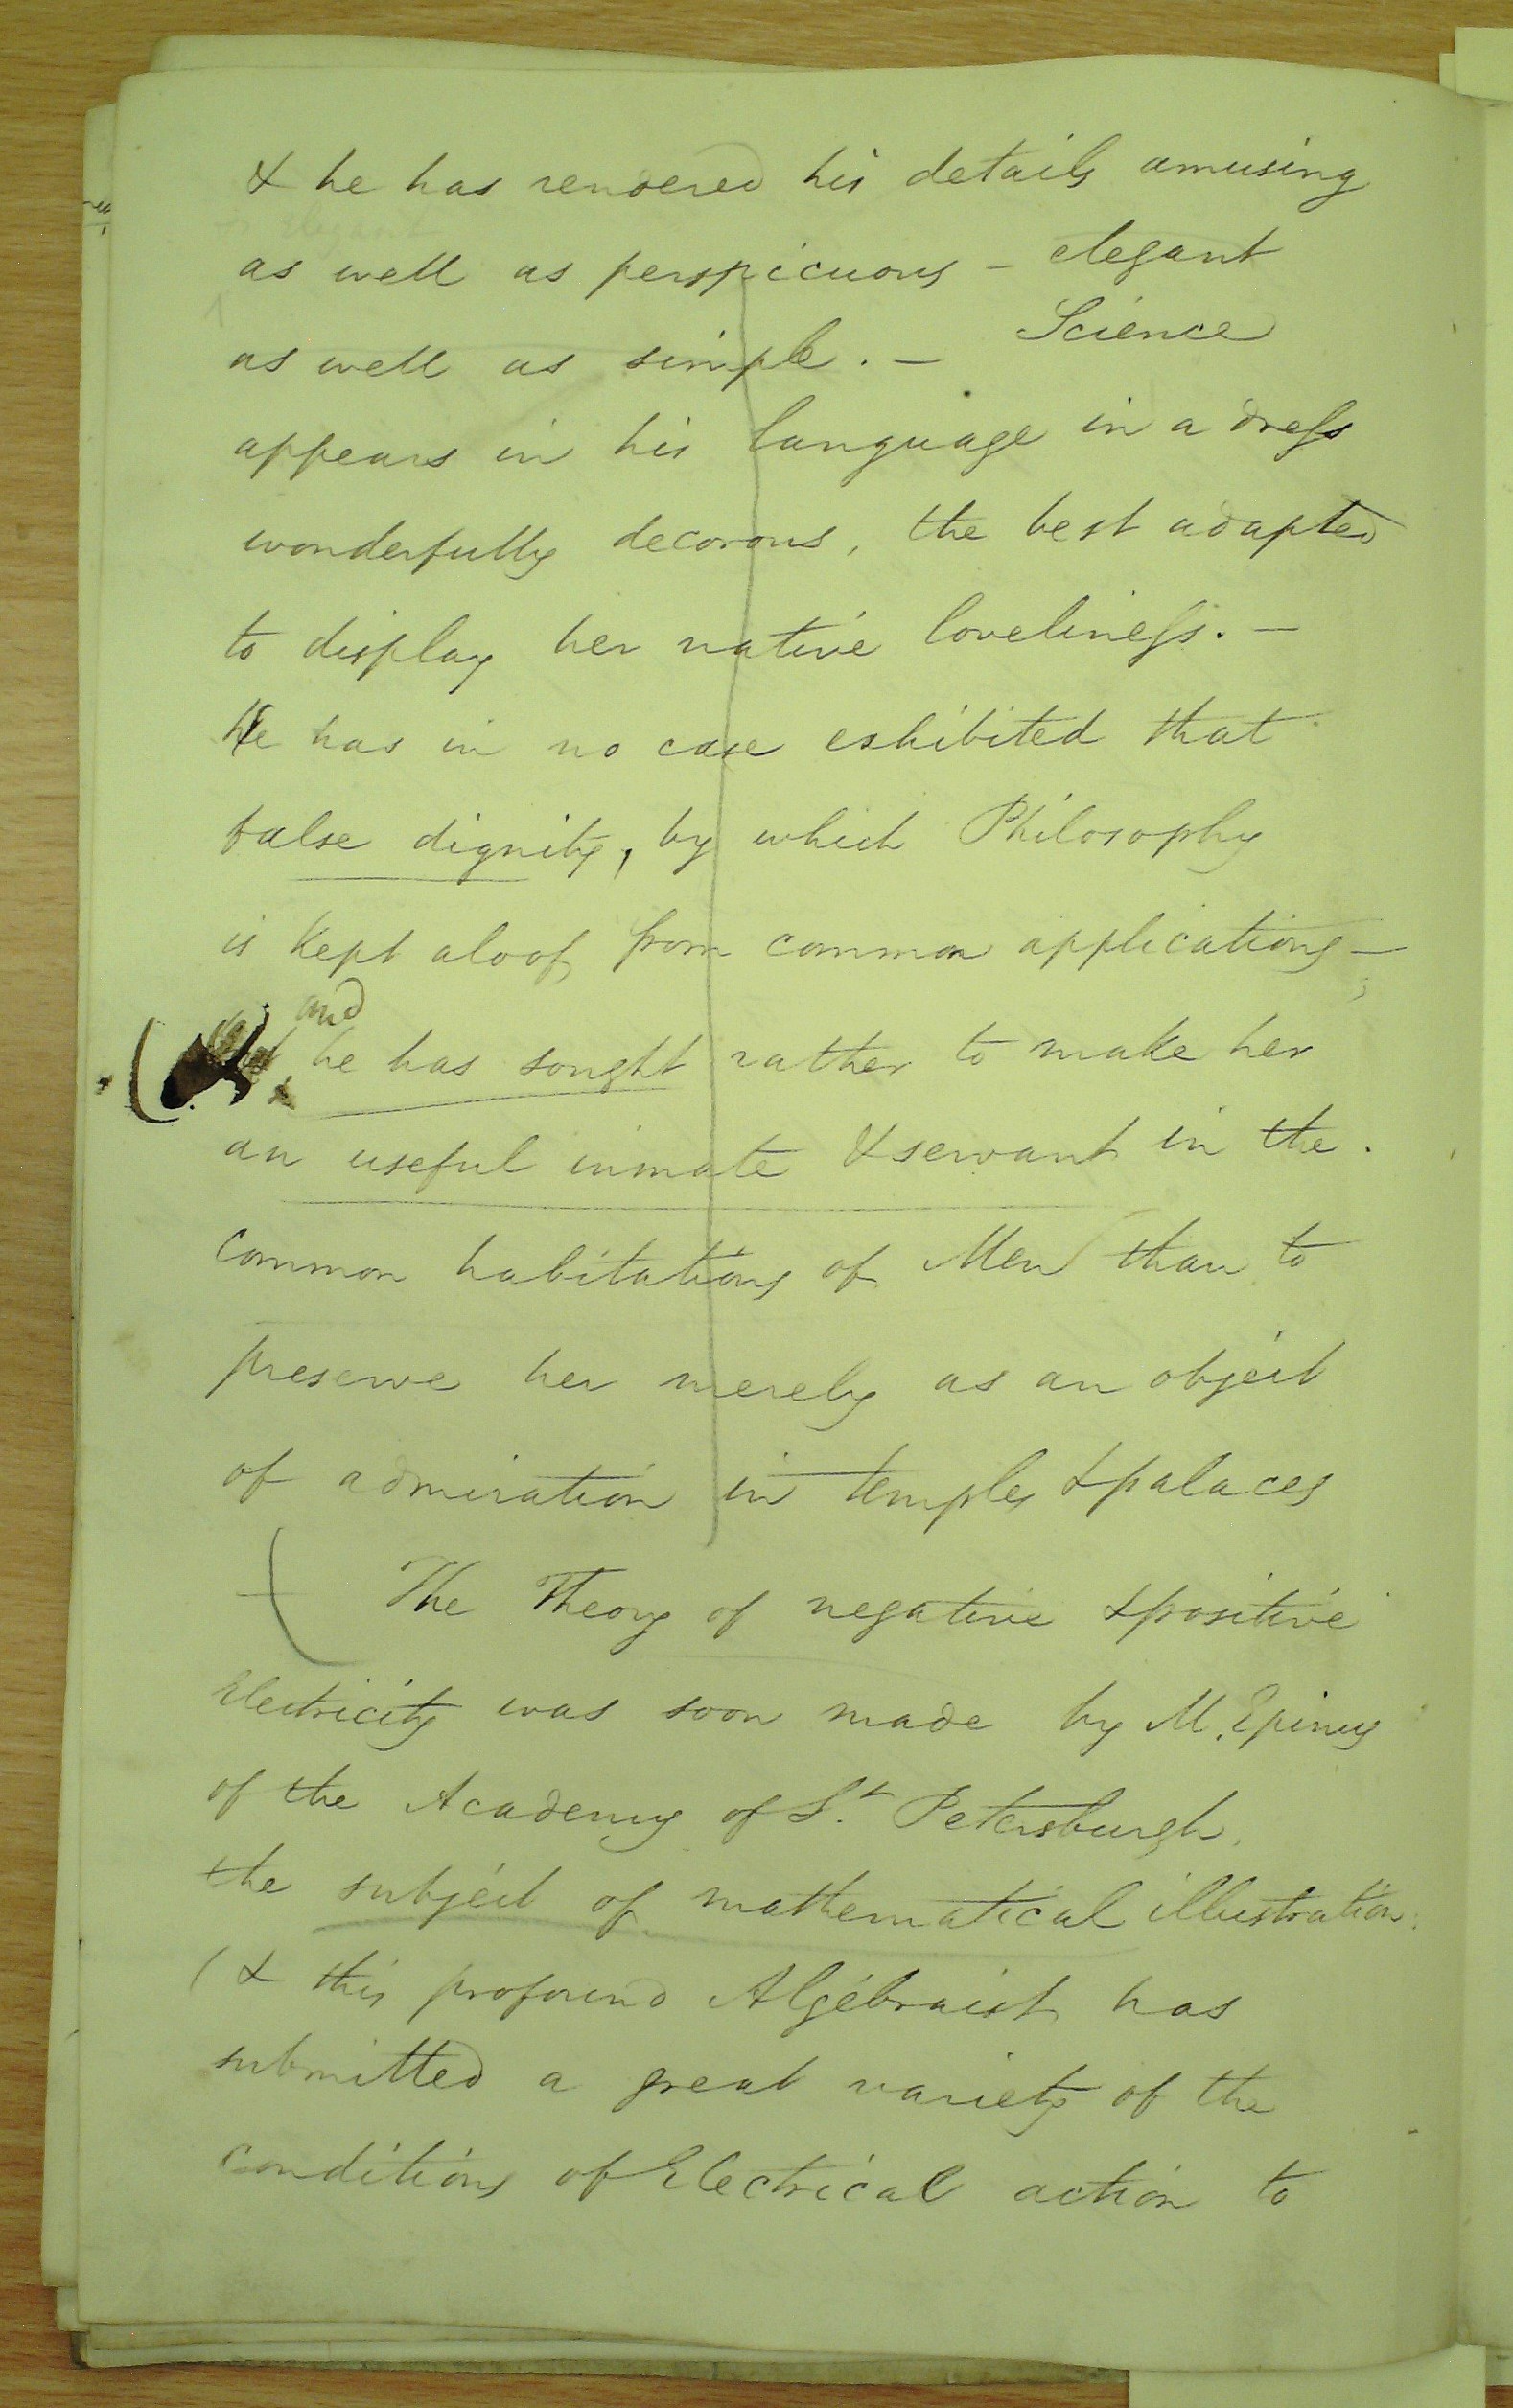 & he has rendered his details amusing
as well as perspicuous – elegant
as well as simple. – Science
appears in his language in a dress
wonderfully decorous, the best adapted
to display her native loveliness. –
He has in no case exhibited that
false dignity, by which Philosophy
is kept aloof from common applications –
and
he has sought rather to make her
an useful inmate & servant in the
common habitations of Men than to
preserve her merely as an object
of admiration in temples & palaces
The Theory of negative & positive
Electricity was soon made by M. Epinus
of the Academy of St. Petersburgh.
the subject of mathematical illustration.
(& this profound Algebraist has
submitted a great variety of the
conditions of Electrical action to